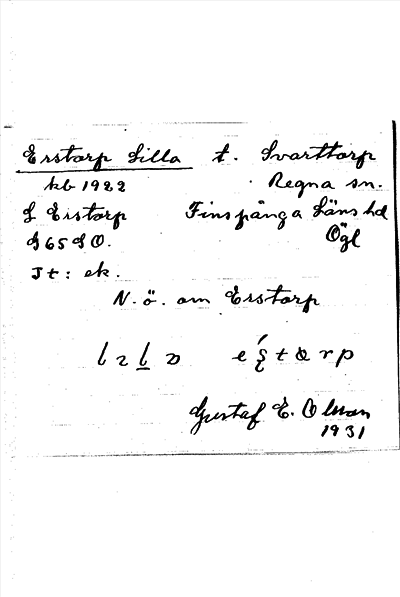 Erstorp Lilla t. Svarttorp
kb 1922 Regna sn.
L Erstorp Finspånga Läns hd
J 65 J O. Ögl
Jt: ek.
N. ö. om Erstorp
Gustaf E. Olman
1931